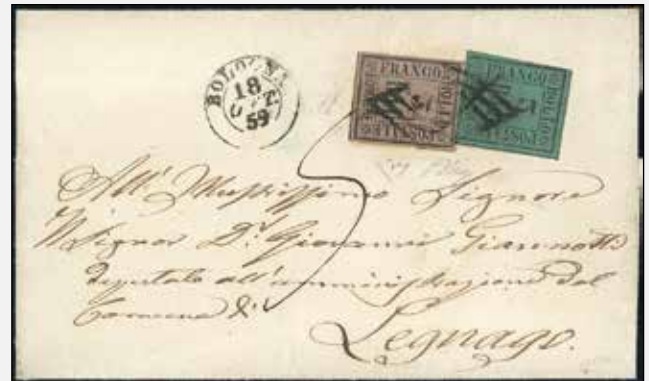 BOLOGNA
18
OTT.
59
FRANCO
BOLLO
POSTALE
FRANCO
BOLLO
POSTALE
5
All' Illustrissimo Signore
Il Signor Dr. Giovanni
deputato all' amministrazione del
Comune di
Legnago.